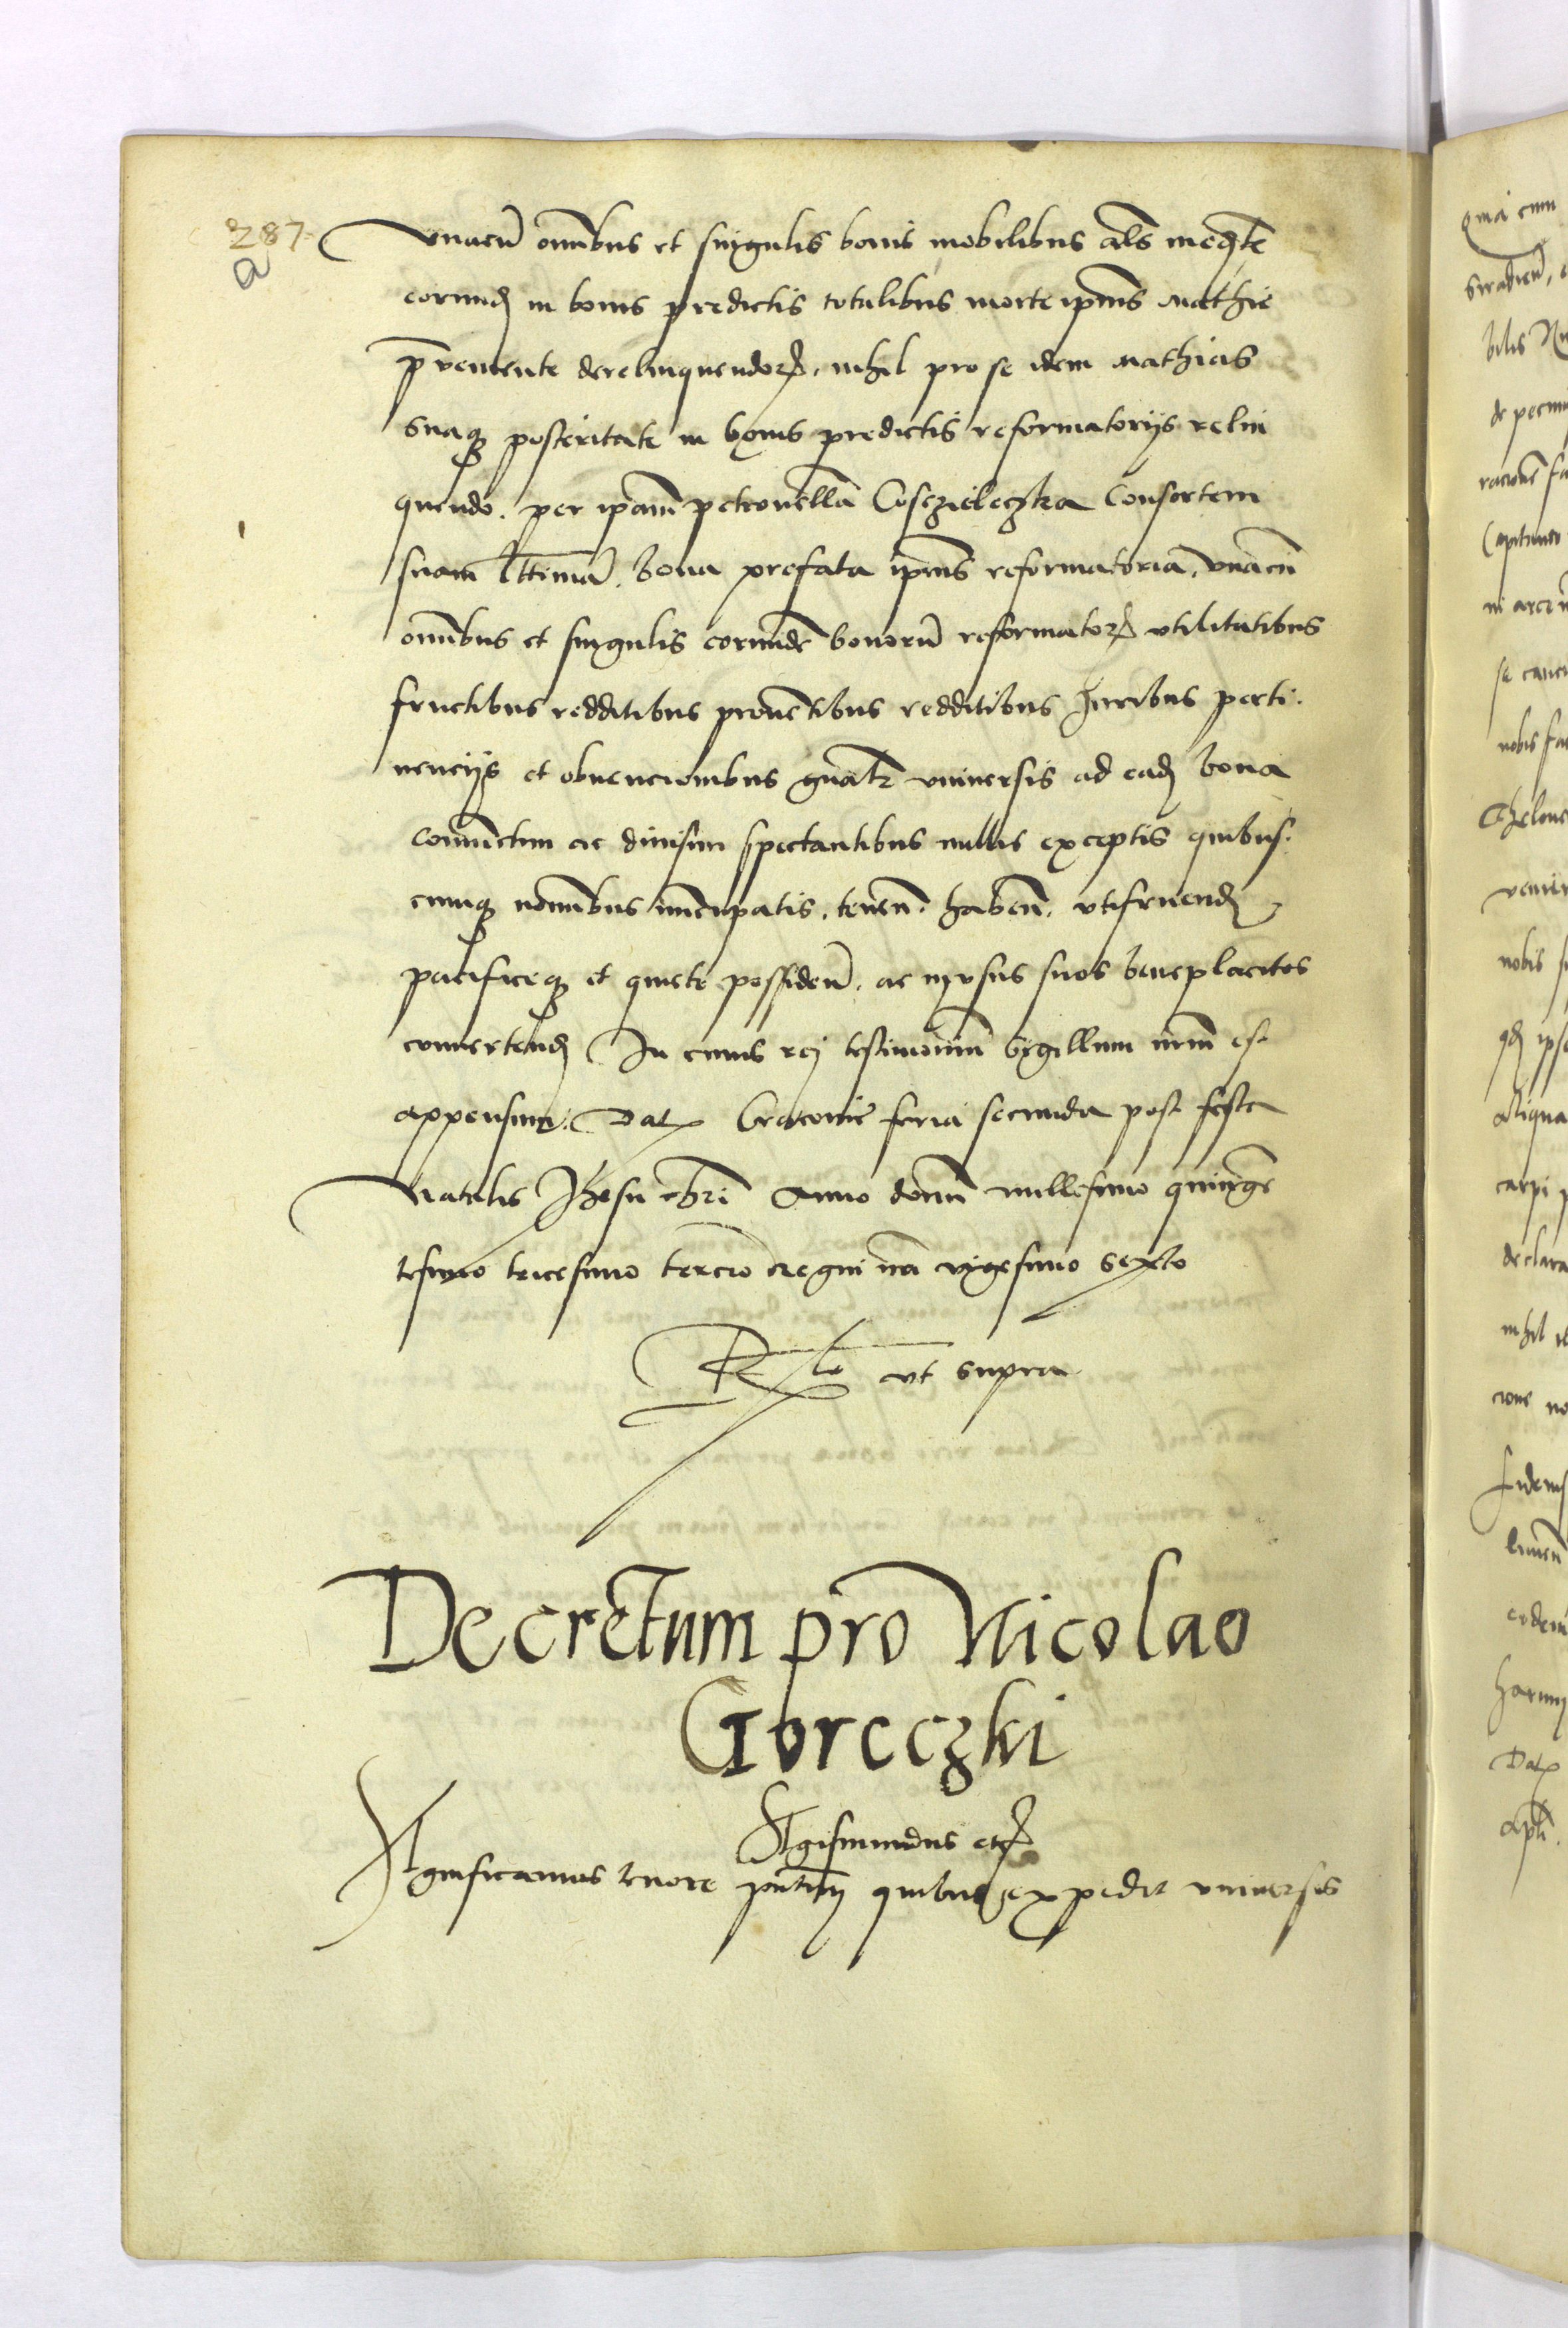 287
a
vnacu͂ omnibus et singulis bonis mobilibus al͂s
eorund͂ in bonis predictis totalibus morte ip͂ius Mathie
p͂veniente derelinquendor͂. nihil pro se idem Mathias
suaq posteritate in bonis predictis reformatorijs relin
quendo. per ip͂am petronella͂ Coszieleczka Consortem
suam l͂tima͂. bona prefata ip͂ius reformatoria. vnacu͂
omnibus et singulis eorunde͂ bonoru͂ reformator͂ vtilitatibus
fructibus redditibus prouentibus redditibus Juribus perti.
nencijs et obuencionibus gn͂al͂r vniuersis ad ead͂ bona
coniunctim ac diuisim spectantibus nullis exceptis quibus.
cunq nominibus nuncupatis. tenen͂. haben͂. vtifruend͂
pacificeq et quiete possiden͂. ac in vsus suos beneplacitos
conuertend͂ In cuius rej testimoniu͂ Sigillum nr͂m est
appensum. Dat͂ Cracouie feria secunda post festa
Natalis Jhesu chr͂i Anno domini millesimo quinge͂
tesimo tricesimo tercio Regni n͂ri vigesimo sexto
R͂lo vt supra
Decretum pro Nicolao
Goreczki
Sigismundus etc͂
Significamus tenore pn͂tiu͂ quibus expedit vniuersis
qua cum
siradien͂
bilis N
de pecun
racione͂ fa
Capitaneo
in arce
se
nobis fa
Chelons
nobis
qd͂ ipse
aliqua
carpi p
declara
nihil
cione no
Dat͂